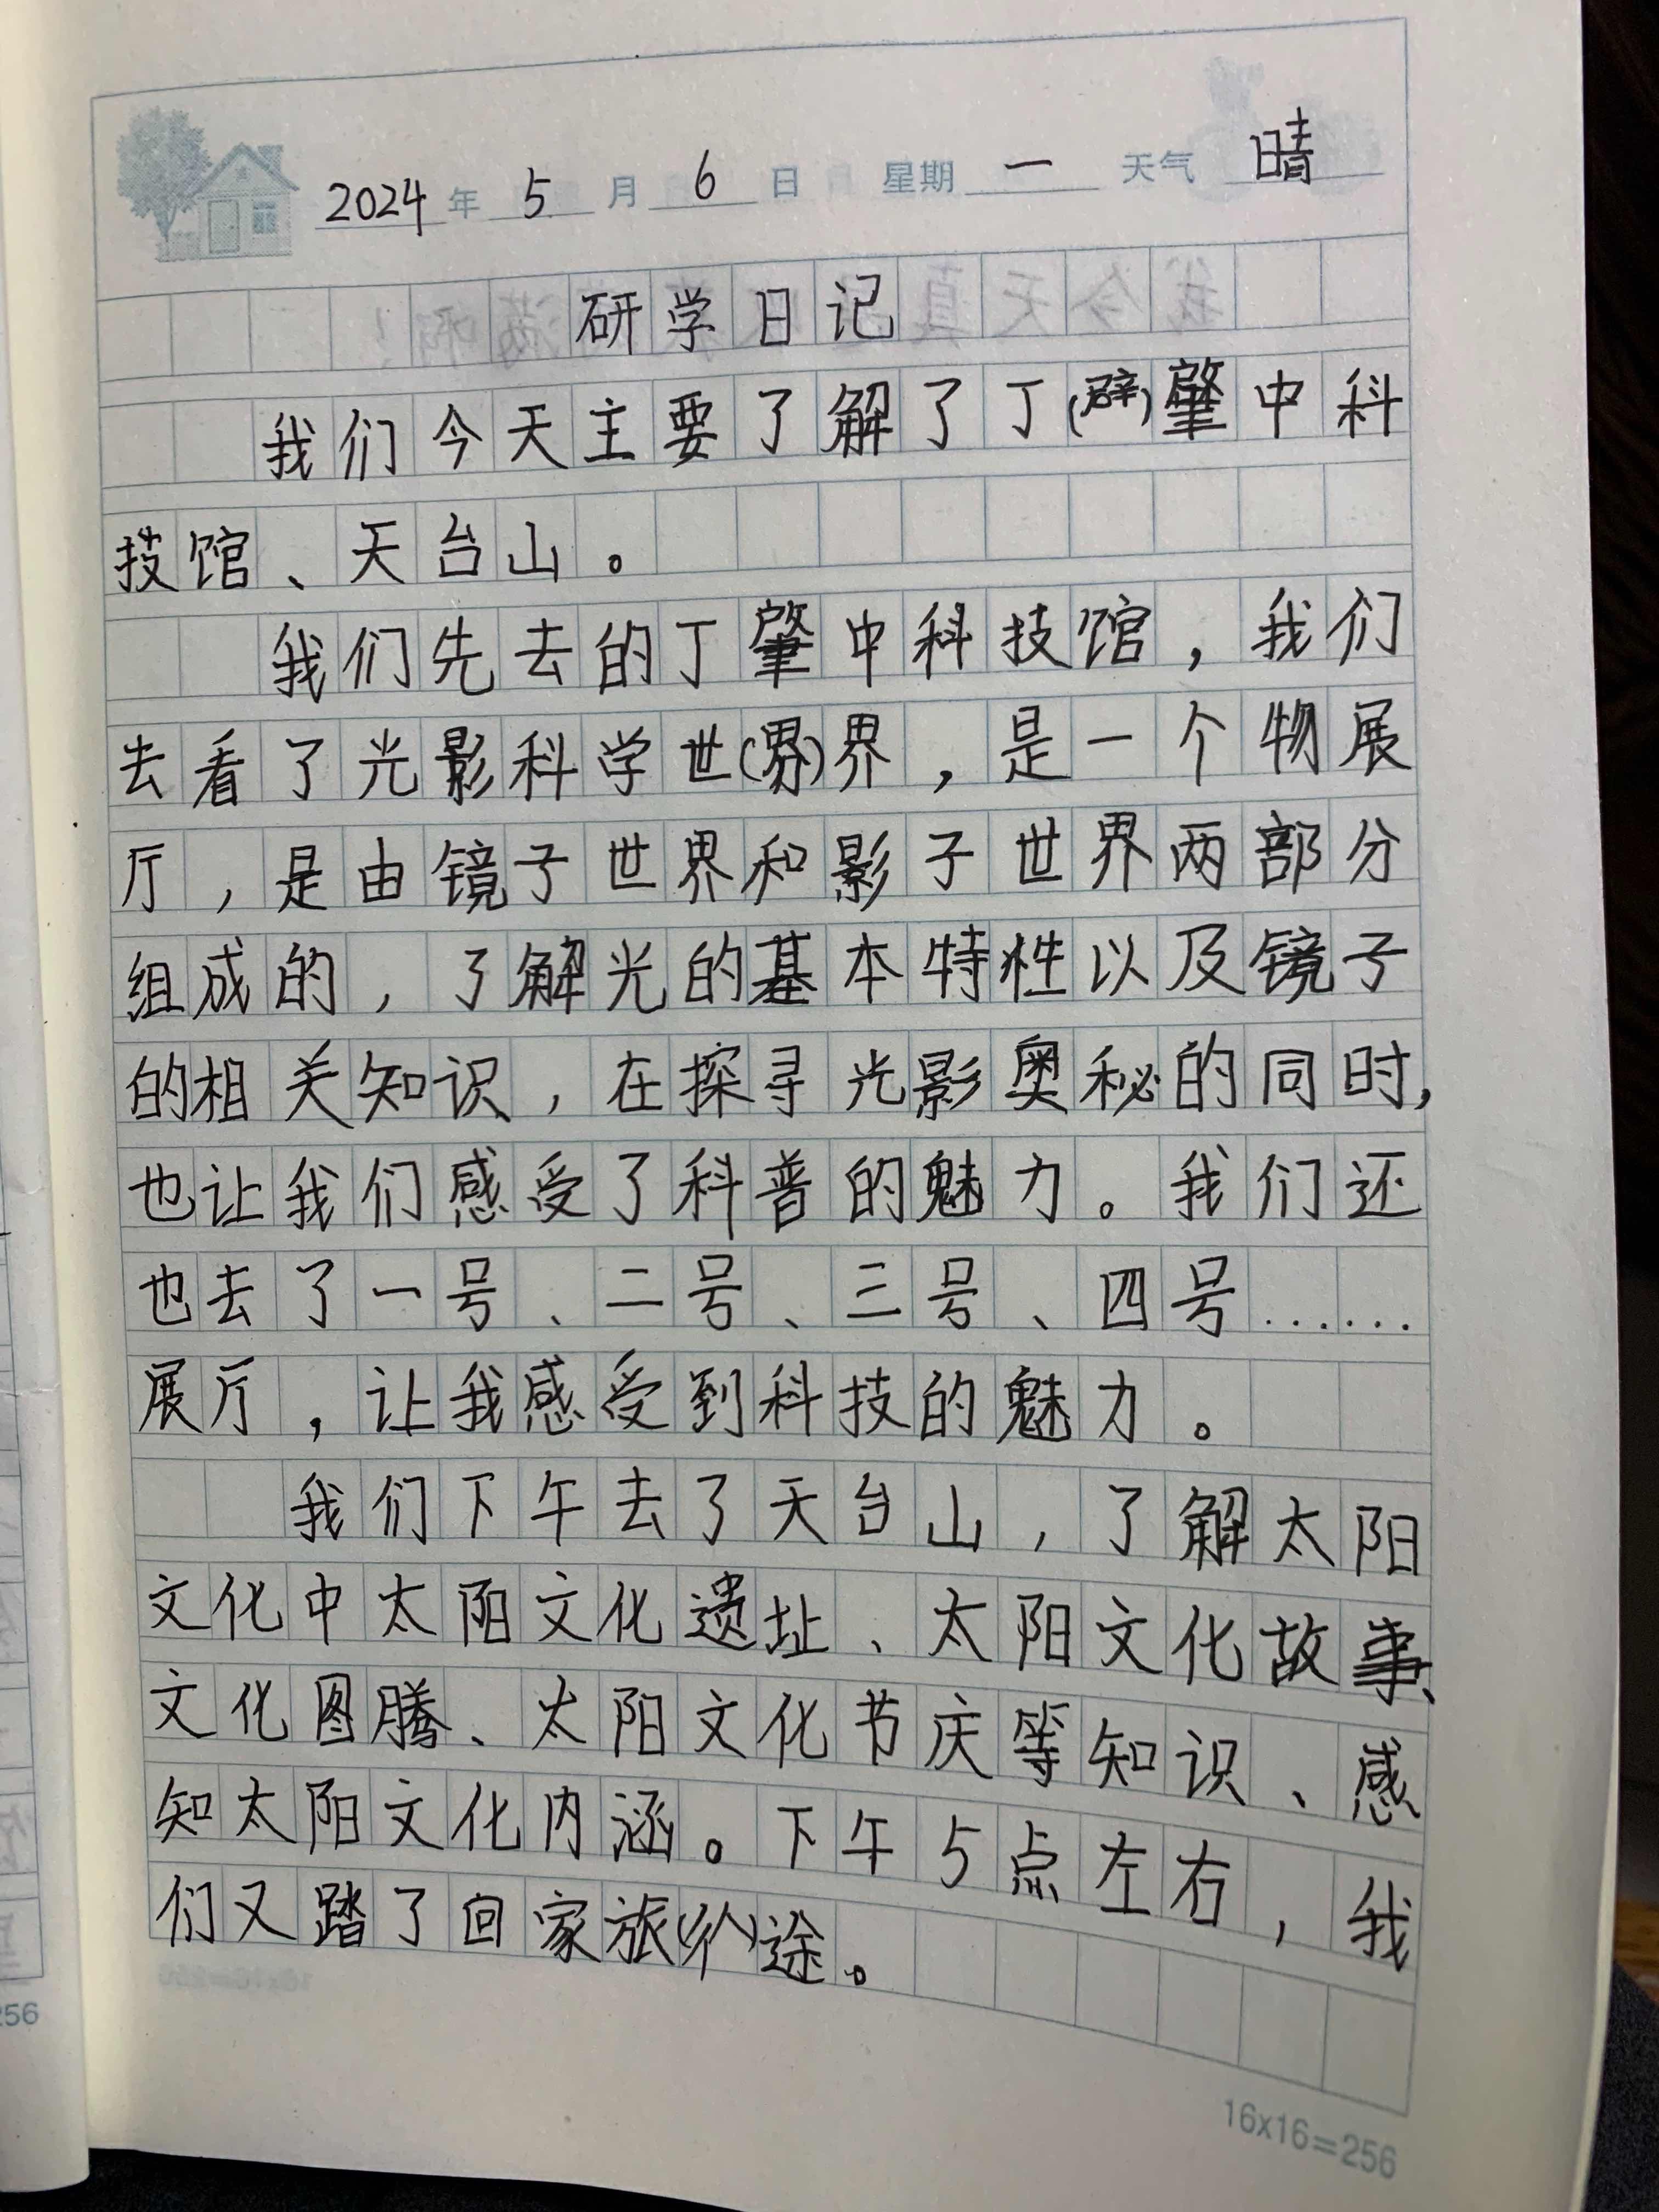 2024年 5 月 6 日 星期 一 天气 晴
研学日记
我们今天主要了解了丁(辟)肇中科
技馆、天台山。
我们先去的丁肇中科技馆，我们
去看了光影科学世(界)界，是一个物展
厅，是由镜子世界和影子世界两部分
组成的，了解光的基本特性以及镜子
的相关知识，在探寻光影奥秘的同时，
也让我们感受了科普的魅力。我们还
也去了一号、二号、三号、四号……
展厅，让我感受到科技的魅力。
我们下午去了天台山，了解太阳
文化中太阳文化遗址、太阳文化故事、
文化图腾、太阳文化节庆等知识、感
知太阳文化内涵。下午5点左右，我
们又踏了回家旅途。
16x16=256
256